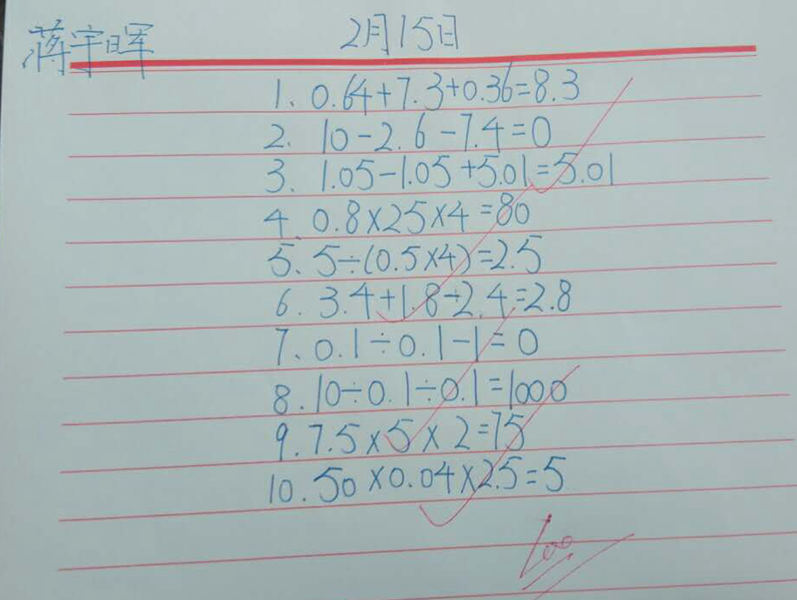 蒋宇晖 2月15日
1、0.64+7.3+0.36=8.3
2. 10-2.6-7.4=0
3. 1.05-1.05+5.01=5.01
4. 0.8×25×4=80
5. 5÷(0.5×4)=2.5
6. 3.4+1.8-2.4=2.8
7、0.1÷0.1-1=0
8.10÷0.1÷0.1=1000
9.7.5×5×2=75
10.50×0.04×2.5=5
100